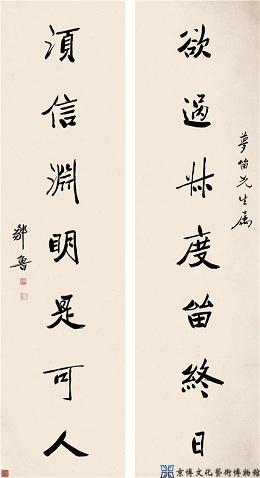 夢笛先生属
欲過叔度留終日
湏信淵明是可人
鄒魯
京博文化藝術博物館